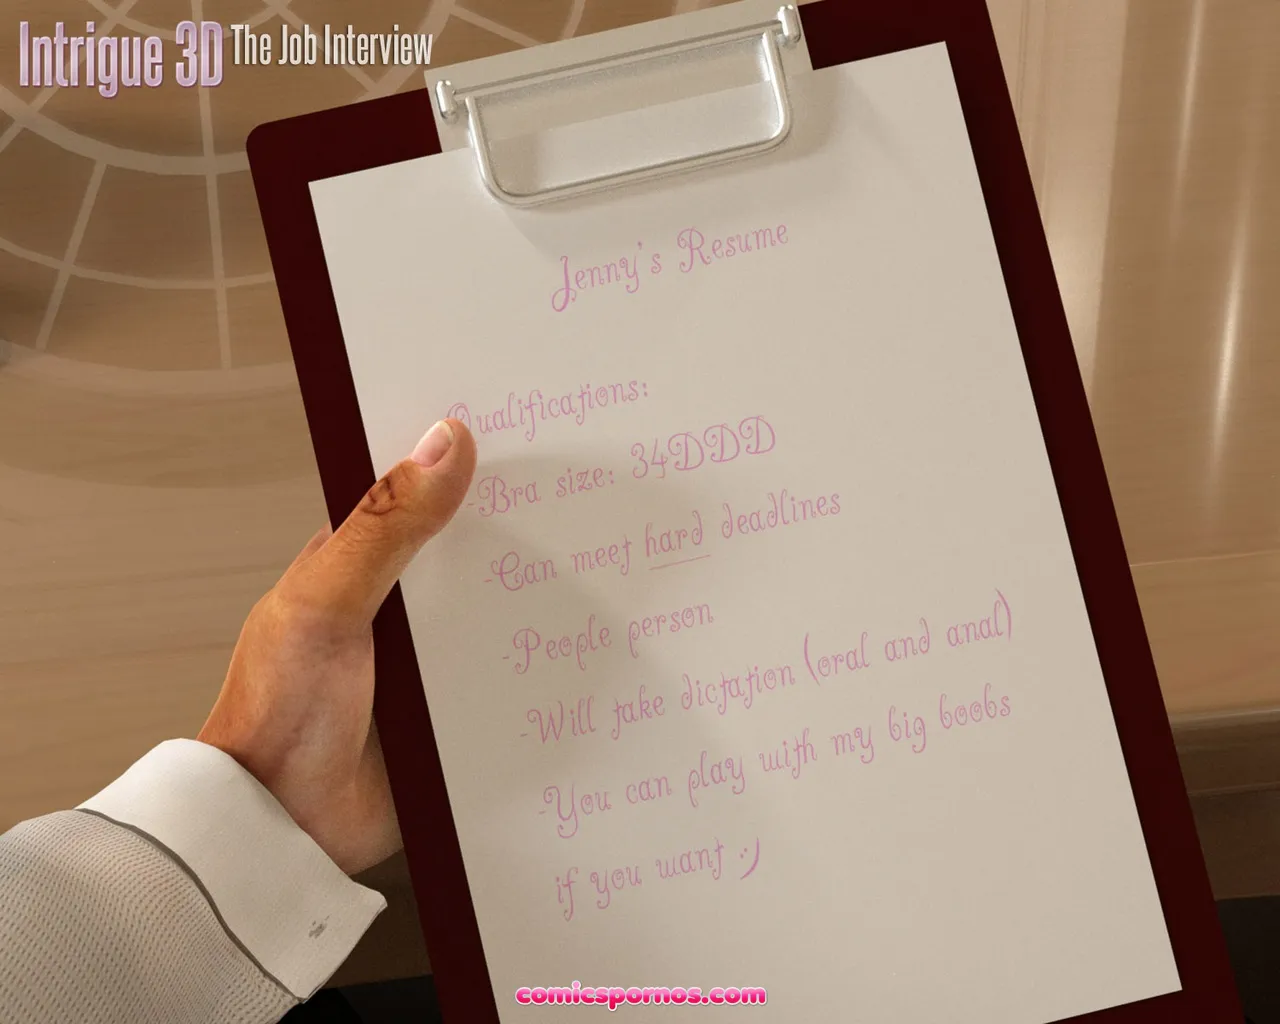 Intrigue 3D The Job Interview
Jenny's Resume
Qualifications:
-Bra size: 34DDD
-Can meet hard deadlines
-People person
-Will take dictation (oral and anal)
-You can play with my big boobs
if you want :)
comicspornos.com